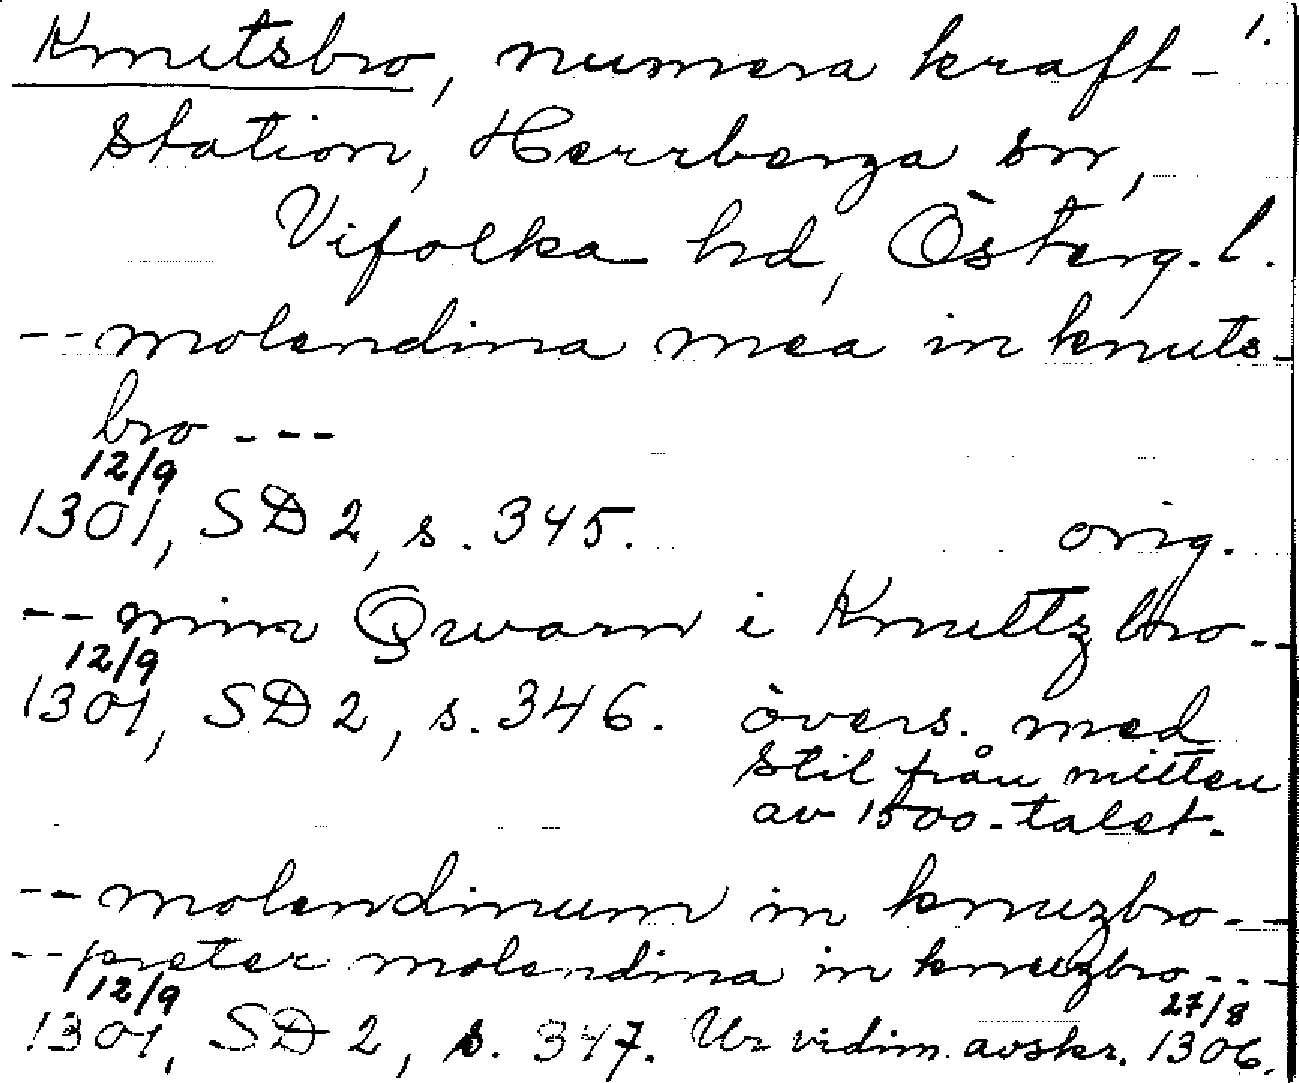 Knutsbro, numera kraft- 1.
station, Herrberga sn,
Vifolka hd, Österg. l.
-- molendina mea in knuts-
bro ---
12/9
1301, SD 2, s. 345. orig.
-- minn Qwarn i Knuttzbro --
12/9
1301, SD 2, s. 346. övers. med
stil från mitten
av 1500-talet.
-- molendinum in knuzbro --
-- preter molendina in knuzbro ---
12/9 27/8
1301, SD 2, s. 347. Ur vidim. avskr. 1306.